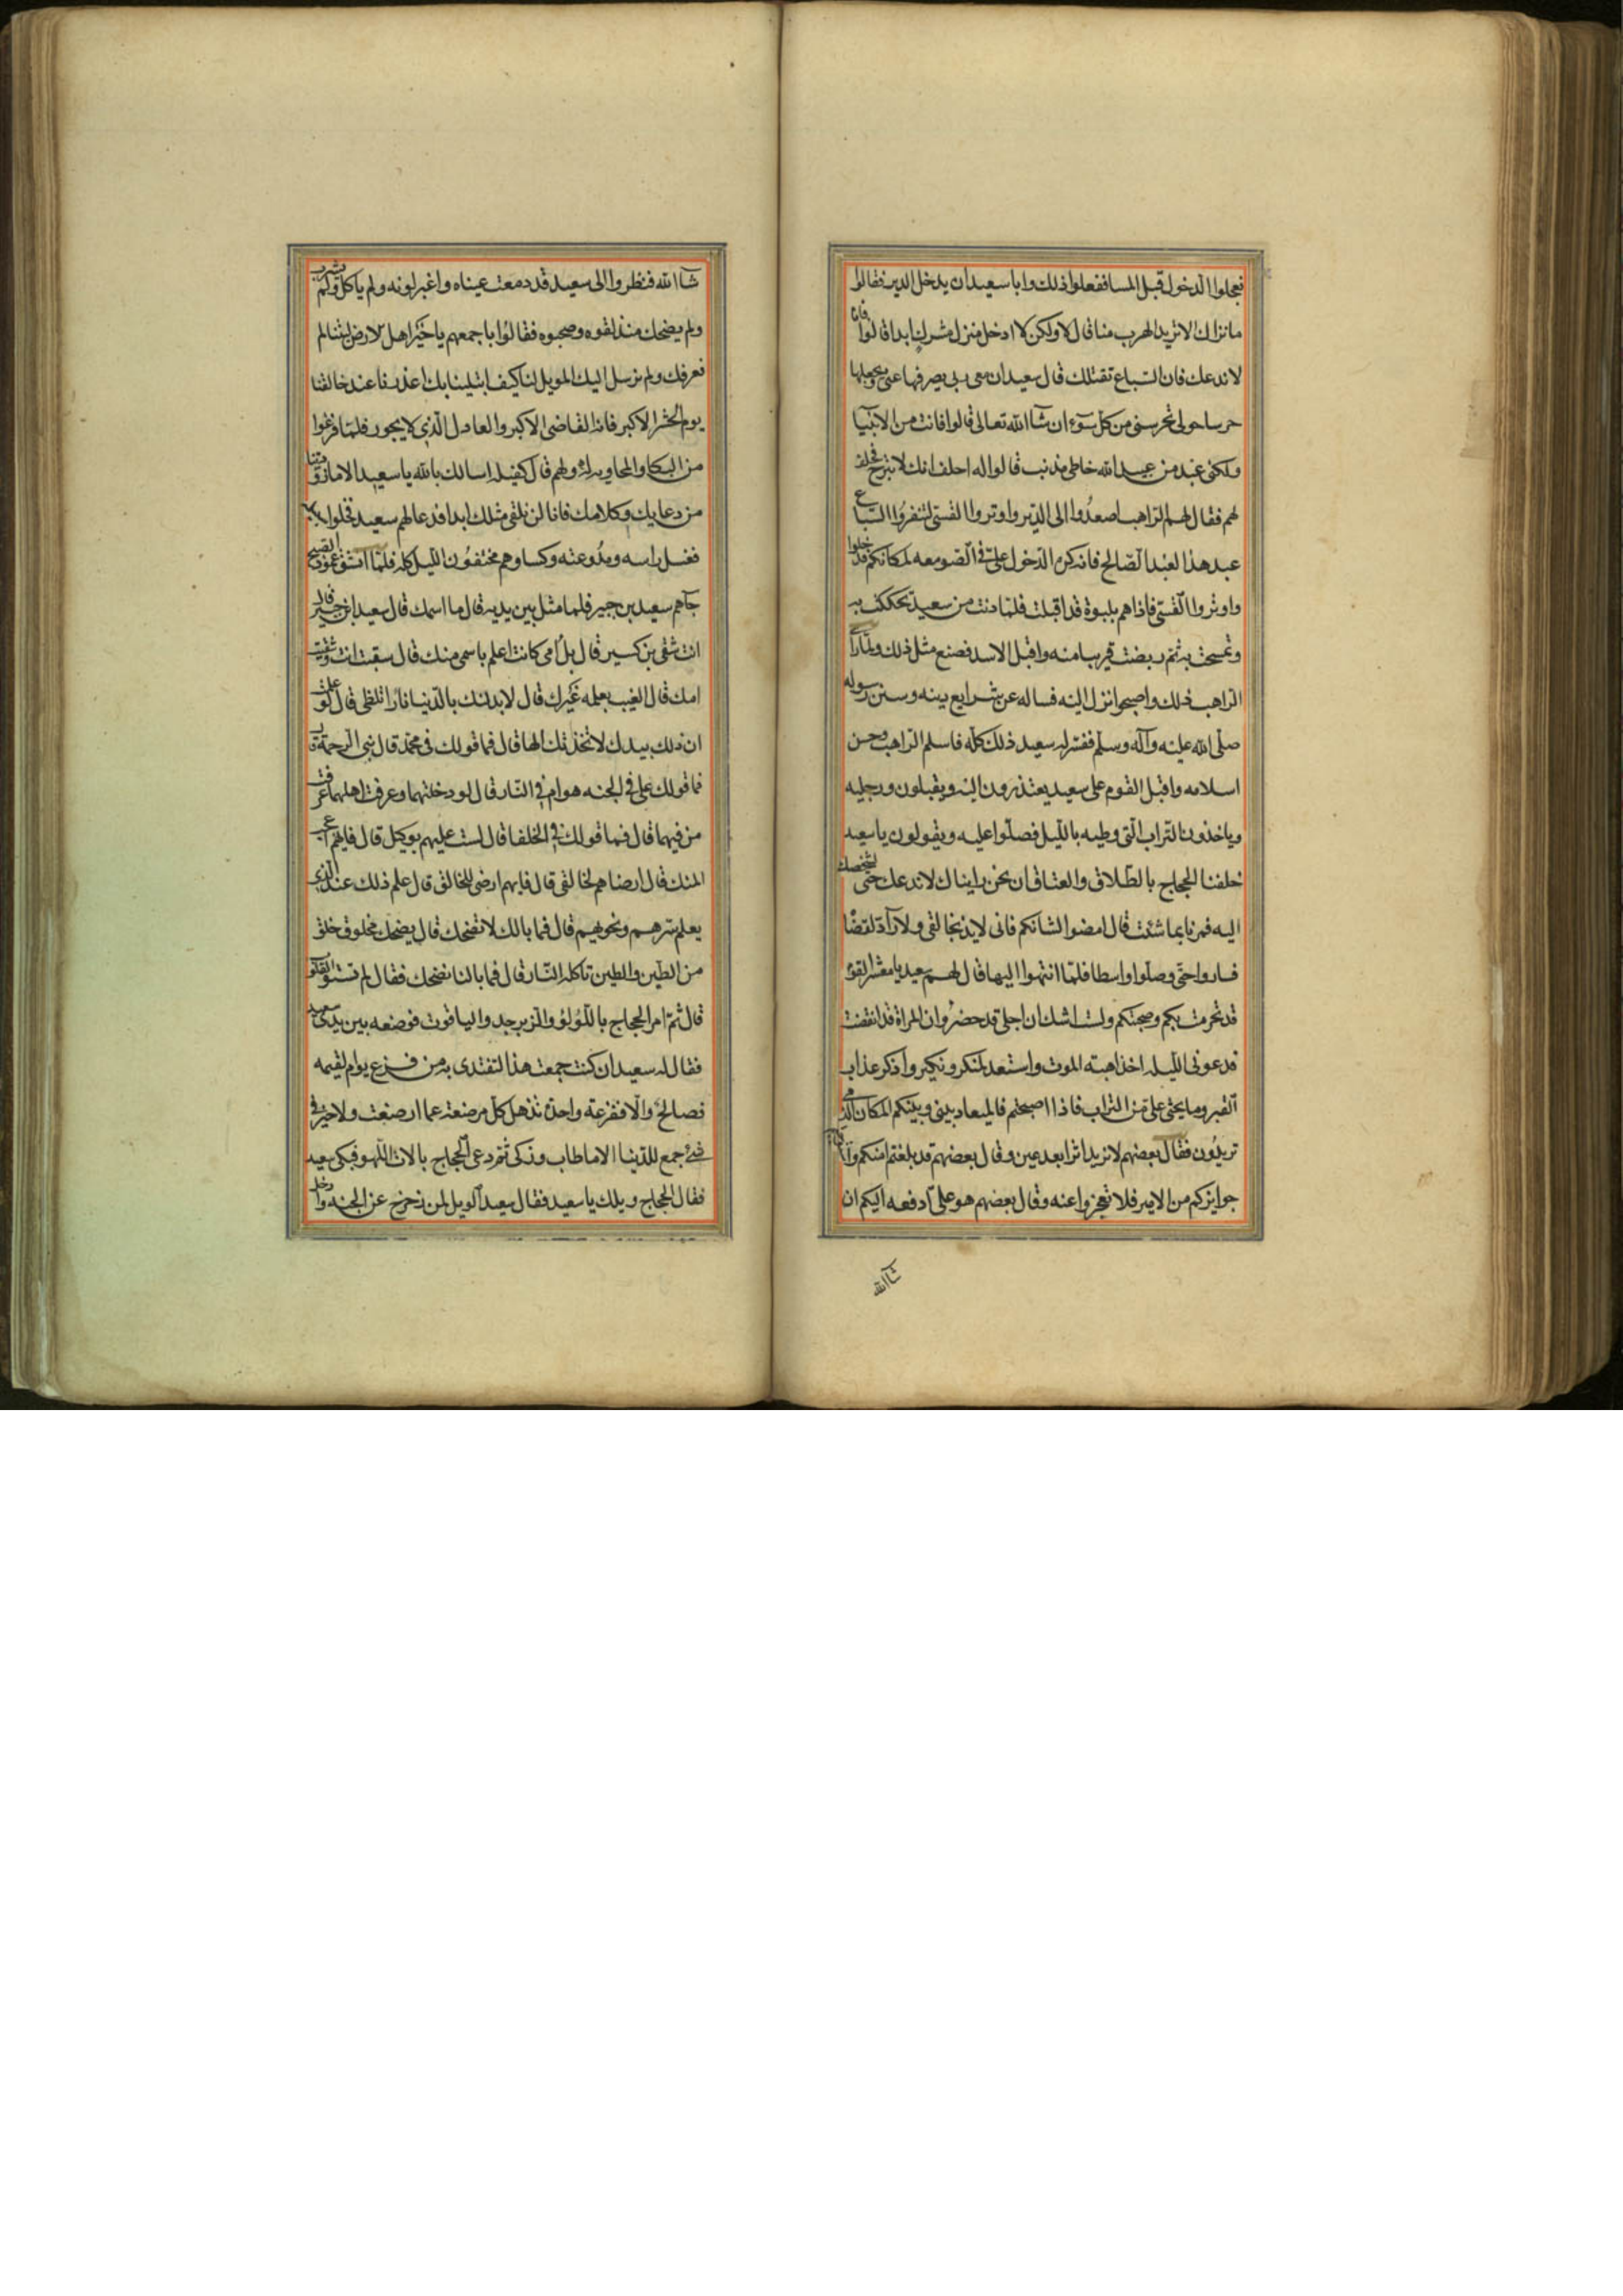 فعجلوا الدخول قبل المسا ففعلوا ذلك وابا سعيد ان يدخل الدير فقالوا
ما نراك الا تريد الهرب منا قال لا ولكن لا ادخل منزل مشرك ابدا قالوا فانا
لا ندعك فان السباع تقتلك قال سعيد ان معى ربى يصرفها عنى ويجعلها
حرسا حولى تحرسنى من كل سوء ان شآ الله تعالى قالوا فانت من الانبيا
ولكنى عبد من عبيد الله خاطى مذنب قالوا له احلف انك لا تبرح فحلف
لهم فقال لهم الراهب اصعدوا الى الدير واوتروا القسى لتنفروا السباع
عبد هذا العبد الصالح فانه كره الدخول على فى الصومعه لمكانكم فدخلوا
واوتروا القسى فاذا هم بلبوة قد اقبلت فلما دنت من سعيد تحككت به
وتمسحت به ثم ربضت قريبا منه واقبل الاسد فصنع مثل ذلك ولما رآى
الراهب ذلك واصبحوا نزل اليه فساله عن شرايع دينه وسنن رسوله
صلى الله عليه وآله وسلم ففسر له سعيد ذلك كله فاسلم الراهب وحسن
اسلامه واقبل القوم على سعيد يعتذرون اليه ويقبلون ورجليه
وياخذون التراب التى وطيه بالليل فصلوا عليه ويقولون يا سعيد
حلفنا الحجاج بالطلاق والعتاق ان نحن رايناك لا ندعك حتى لنشخصك
اليه فمرنا بما شئت قال امضوا لشانكم فانى لايذ بخالقى ولا رآد لقضا
فساروا حتى وصلوا واسطا فلما انتهوا اليها قال لهم سعيد يا معشر القوم
قد تحرمت بكم وصحبتكم ولست اشك ان اجلى قد حضر وان المراة قد انقضت
فدعونى الليله اخذ اهبته الموت واستعد لمنكر ونكير واذكر عذاب
القبر وما يحثى على من التراب فاذا اصبحتم فالميعاد بينى وبينكم المكان الذى
تريدون فقال بعضهم لا نريد اثرا بعد عين وقال بعضهم قد بلغتم امنكم
جوايزكم من الامير فلا تعجزوا عنه وقال بعضهم هو على ادفعه اليكم ان
شآ الله
شآ الله فنظروا الى سعيد قد دمعت عيناه واغبر لونه ولم ياكل ولم يشرب
ولم يضحك منذ لقوه وصحبوه فقالوا باجمعهم يا خير اهل لارض ليتنا لم
نعرفك ولم نرسل اليك الويل لنا كيف ابتلينا بك اعذرنا عند خالقنا
يوم الحشر الاكبر فانه القاضى الاكبر والعادل الذى لا يجور فلما فرغوا
من البكا والمحاوبه له ولهم قال كفيله اسالك بالله يا سعيد الا ما زودتنا
من دعايك وكلامك فانا لن نلقى مثلك ابدا فدعا لهم سعيد فخلوا
فغسل راسه ومدرعته وكساوهم مختفون الليل كله فلما انشق عمود الصبح
جآهم سعيد بن جبير فلما مثل بين يديه قال ما اسمك قال سعيد ابن جبير قال
انت شقى بن كسير قال بل امى كانت اعلم باسمى منك قال شقيت انت وشقيت
امك قال الغيب يعلمه غيرك قال لابدلنك بالدنيا نارا تلظى قال لو علمت
ان ذلك بيدك لاتخذتك الها قال فما قولك فى محمد قال نبى الرحمة قال
فما قولك على فى الجنه هو ام فى النار قال لو دخلتهما وعرفت اهلهما عرفت
من فيهما قال فما قولك فى الخلفا قال لست عليهم بوكيل قال فايهم اعجب
اليك قال ارضاهم لخالقى قال فايهم ارضى للخالق قال علم ذلك عند الذى
يعلم سرهم ونجويهم قال فما بالك لا تضحك قال يضحك مخلوق خلق
من الطين والطين تاكله النار قال فما بالنا نضحك فقال لم تستو القلوب
قال ثم امر الحجاج باللولو والزبرجد والياقوت فوضعه بين يدى سعيد
فقال له سعيد ان كنت جمعت هذا لتفتدى به من فزع يوام لقيمه
فصالح والا ففزعة واحدة تذهل كل مرضعة عما ارضعت ولا خير فى
شئ جمع للدنيا الا ما طاب وزكى ثم دعى الحجاج بالات اللهو فبكى سعيد
فقال الحجاج ويلك يا سعيد فقال سعيد الويل لمن زحزح عن الجنه وادخل